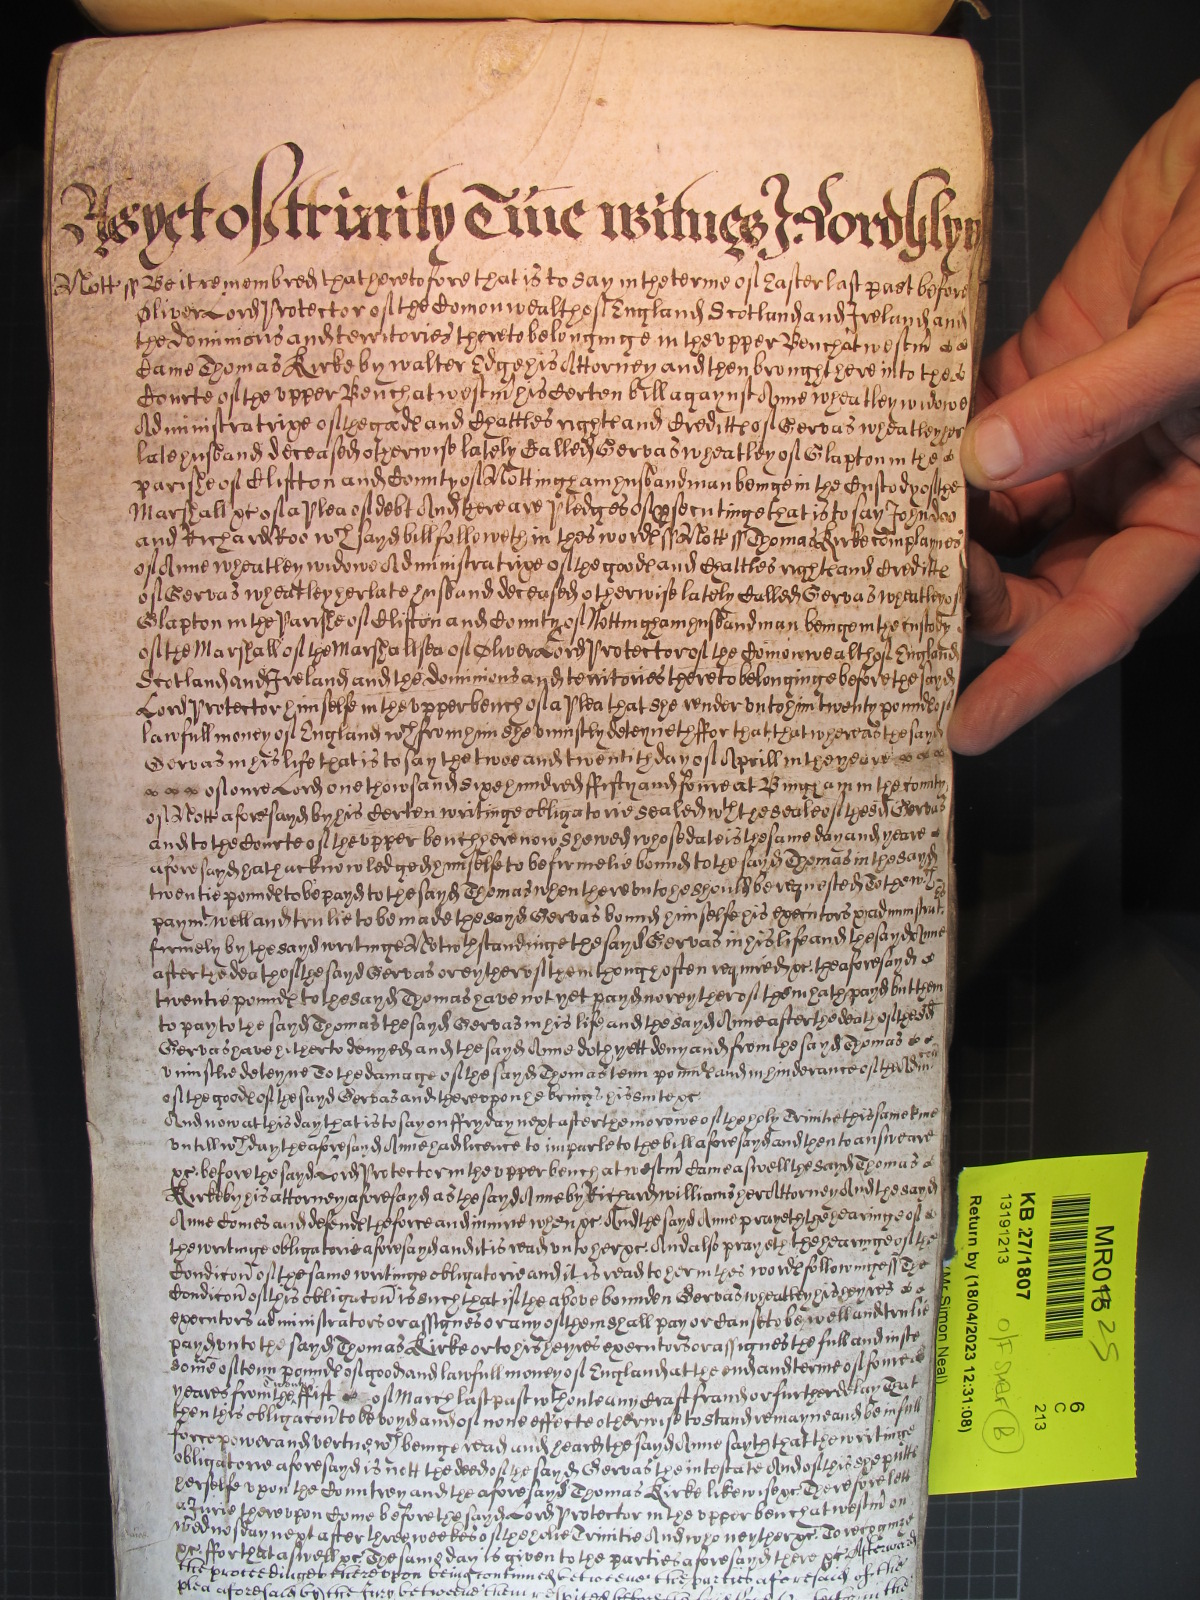 As yet of Trinity Time witnes J: Lord Glyn
Nott ss Be it remembred that heretofore that is to say in the terme of Easter last past before
Oliver Lord Protector of the Comonwealth of England Scotland and Ireland and
the dominions and territories thereto belonginge in the upper Bench at westm̄
Came Thomas Kirke by walter Edge his Attorney and then brought here into the
Courte of the upper Bench at westm̄ his Certen bill agaynst Anne wheatley widowe
Administratrixe of the goods and Chattles right and Creditts of Gervas wheatley her
late husband deceased otherwise lately Called Gervas wheatley of Glapton in the
parishe of Clifton and County of Nottingham husbandman beinge in the Custody of the
Marshall &c of a Plea of debt And there are Pledges of prsecutinge that is to say John doo
and Richard Roo wch sayd bill followeth in thes words ss Nott ss Thomas Kirke complaines
of Anne wheatley widowe Administratrixe of the goods and Chattles right and Creditts
of Gervas wheatley her late husband deceased otherwise lately Called Gervas wheatley of
Glapton in the Parishe of Clifton and County of Nottingham husbandman beinge in the custody
of the Marshall of the Marshallsea of Oliver Lord Protector of the Comonwealth of England
Scotland and Ireland and the dominions and territories thereto belonginge before the sayd
Lord Protector himselfe in the upper bench of a Plea that she render unto him twenty pounds of
lawfull money of England wch from him she uniustly deteyneth ffor that that whereas the sayd
Gervas in his life that is to say the twoe and twentith day of Aprill in the yeare
of oure Lord one thowsand sixe hundred ffifty and foure at Bingham in the County
of Nott aforesayd by his Certen writinge obligatorie sealed wth the seale of the sd Gervas
and to the Courte of the upper bench here now shewed whose date is the same day and yeare
aforesayd hath acknowledged himselfe to be firmelie bound to the sayd Thomas in the sayd
twentie pounds to be payd to the sayd Thomas when thereunto he should be requested To the wch
paymt well and trulie to be made the sayd Gervas bound himselfe his executors & administrat.
firmely by the sayd writinge Notwthstandinge the sayd Gervas in his life and the sayd Anne
after the death of the sayd Gervas or eyther of them though often required &c. the aforesayd
twentie pounds to the sayd Thomas have not yet payd nor eyther of them hath payd but them
to pay to the sayd Thomas the sayd Gervas in his life and the sayd Anne after the death of the sd
Gervas have hitherto denyed and the sayd Anne doth yett deny and from the sayd Thomas
uniustlie deteyne To the damage of the sayd Thomas tenn pounds and in hinderance of the Admcon
of the goods of the sayd Gervas and thereupon he brings his suite &c
And now at this day that is to say on ffryday next after the morowe of the holy Trinitie this same terme
untill wch day the aforesayd Anne had licence to imparle to the bill aforesayd and then to answeare
&c. before the sayd Lord Protector in the upper bench at westm̄ Came aswell the sayd Thomas
Kirke by his attorney aforesayd as the sayd Anne by Richard williams her Attorney And the sayd
Anne Comes and defends the force and iniurie when &c. And the sayd Anne prayeth the hearinge of
the writinge obligatorie aforesayd and it is read unto her &c. And also prayeth the hearinge of the
Condicōn of the same writinge obligatorie and it is read to her in thes words followinge ss The
Condicōn of this obligacōn is such that if the above bounden Gervas wheatley his heyres
executors administrators or assignes or any of them shall pay or Cause to be well and trulie
payd unto the sayd Thomas Kirke or to his heyres executors or assignes the full and iuste
some of tenn pounds of good and lawfull money of England at the end and terme of foure
yeares from the ffift of March last past wthoute any Craft fraud or further delay That
then this obligacōn to be voyd and of none effecte otherwise to stand remayne and be in full
force power and vertue wch beinge read and heard the sayd Anne sayth that the writinge
obligatorie aforesayd is nott the deed of the sayd Gervas the intestate And of this she putts
herselfe upon the Countrey and the aforesayd Thomas Kirke likewise &c Therefore lett
a Jurie thereupon Come before the sayd Lord Protector in the upper bench at westm̄ on
wednesday next after three weekes of the holie Trinitie And who neyther &c. To recognize
&c. ffor that aswell &c. The same day is given to the parties aforesayd there &c Afterwards
the proceedinges thereupon being continued betweene the parties aforesaid of the
plea aforesaid by the Jury betweene them respited before
MR018 25
6
C
213
KB 27/1807
13191213
offsher (B)
Return by (18/04/2023 12:31:08)
(Mr Simon Neal)